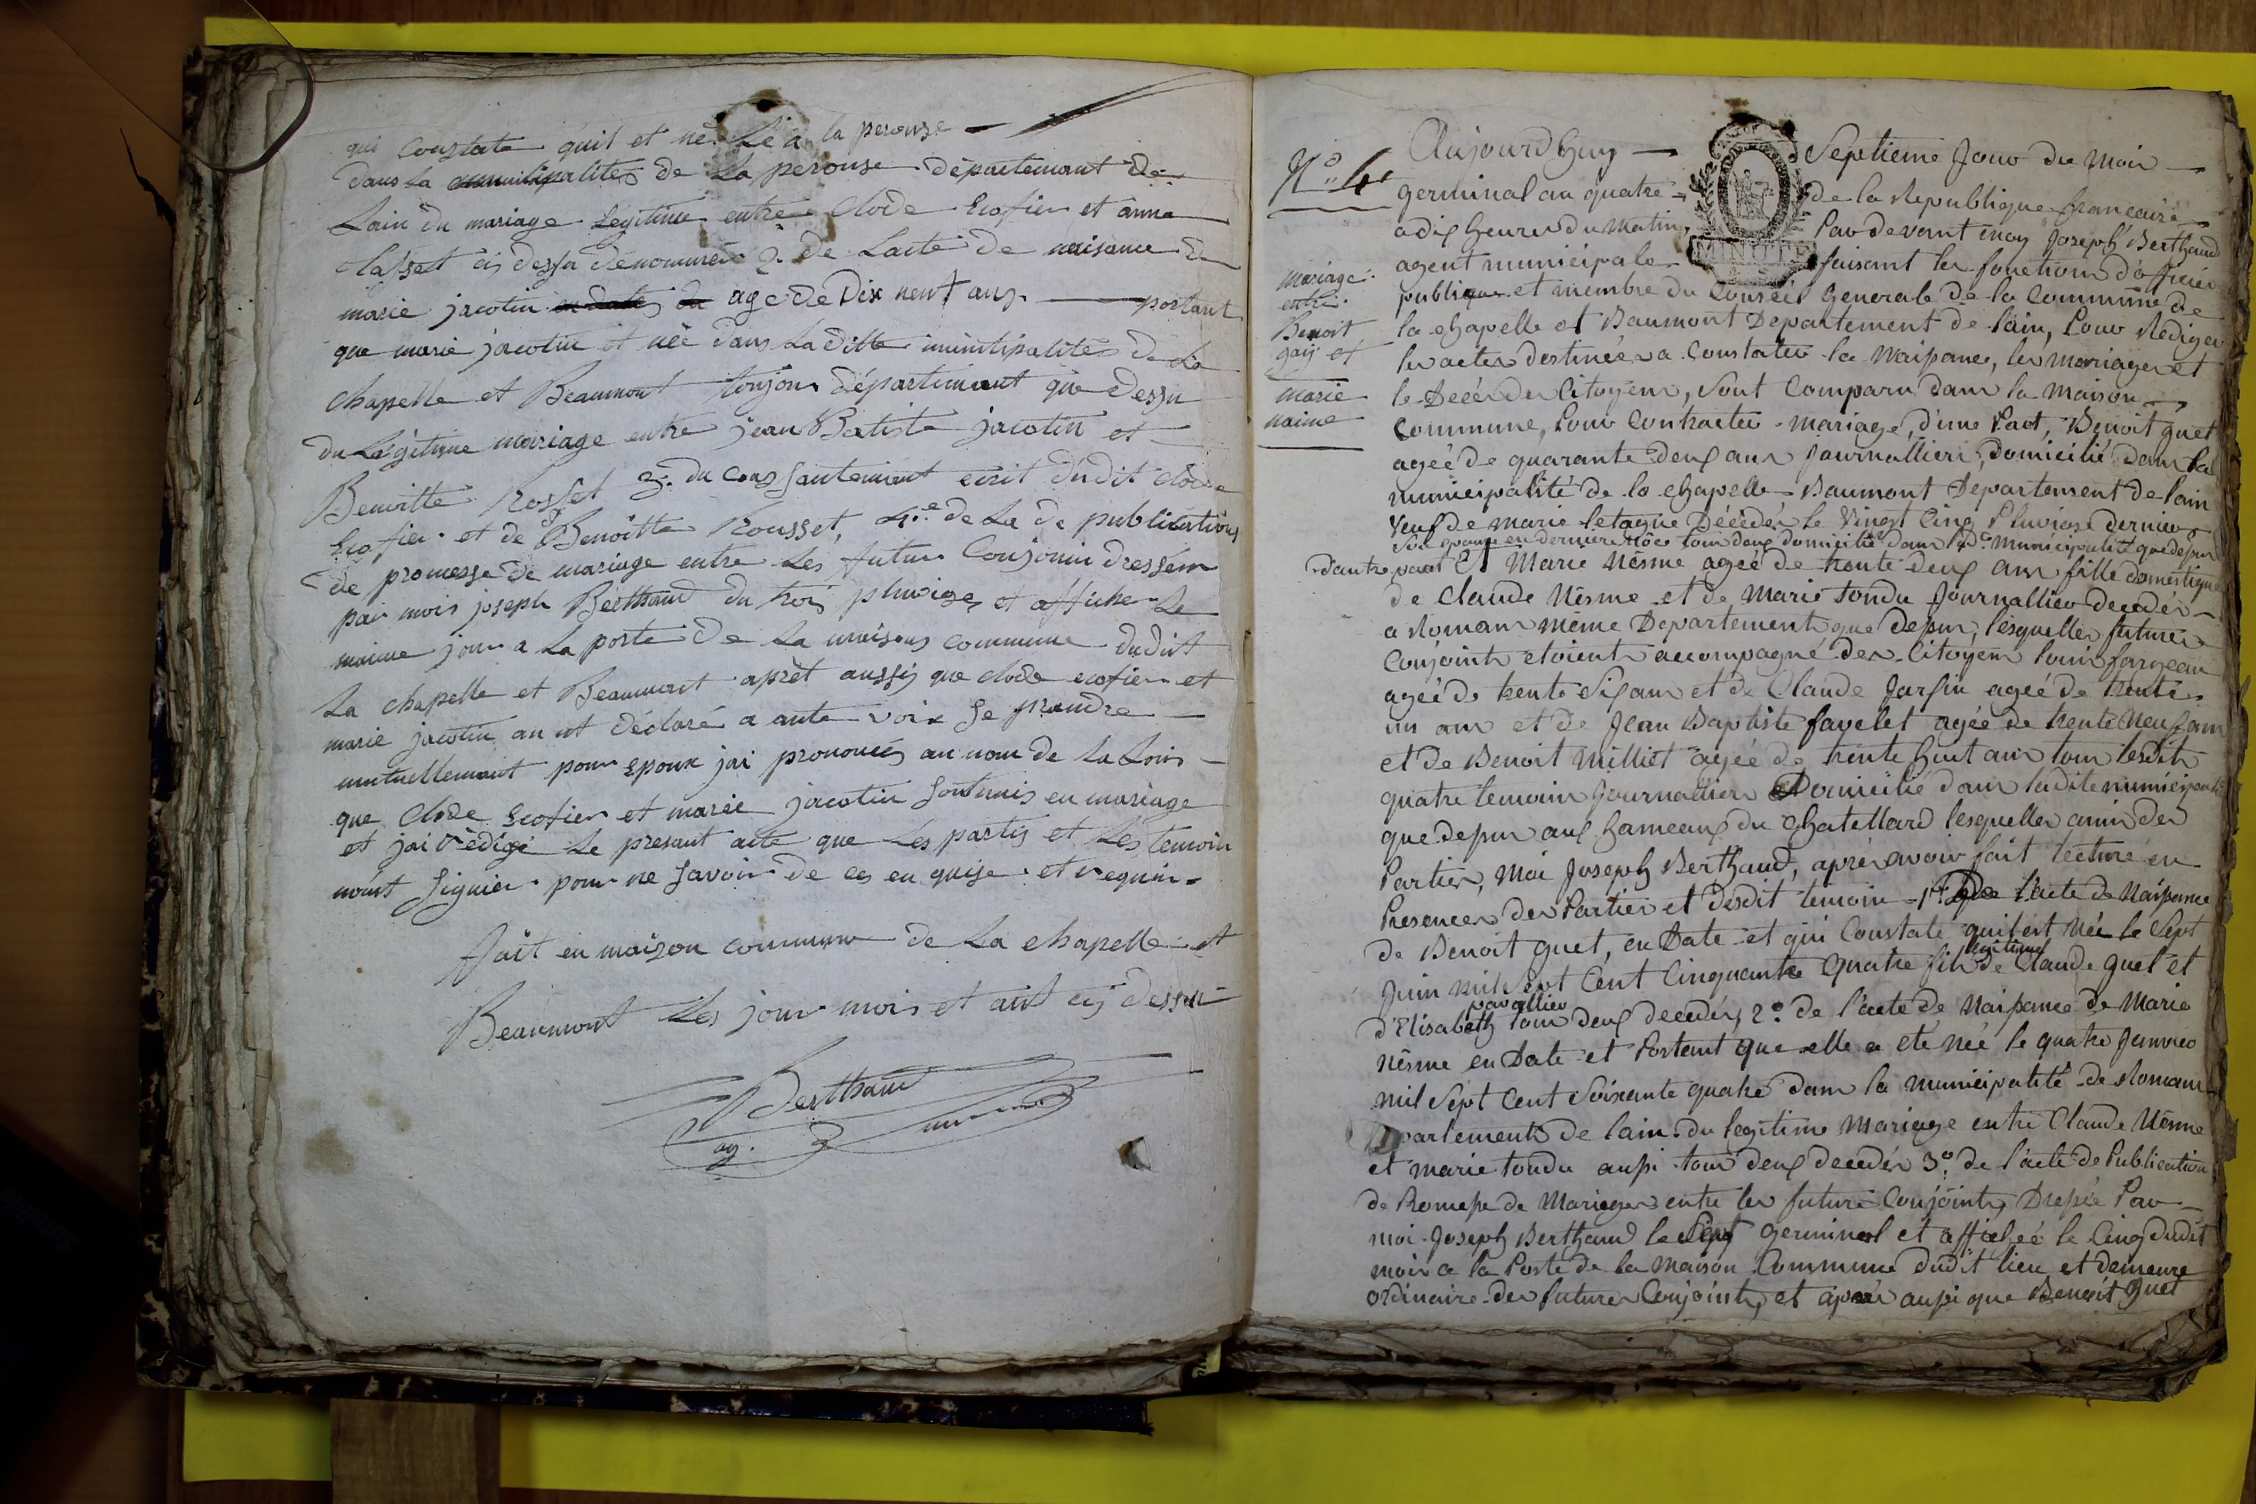 qui constate quil et né Le a la perouze
dans la municipalités de La perouse département de
Lain du mariage Legitime entre Clode Ecofier et anne
Classet cis dessu denommée 2. de Lacte de naisance de
marie jacotin en date du age de Dix neuf ans. portant
que marie jacotin et née dans La ditte municipalités de La
chapelle et Beaumont toujour départimant que dessu
du Légitime mariage entre jean Batiste jacotin et
Benoitte Rosset 3. du consantemant ecrit dudit clode
Ecofier et de Benoitte Rousset, 4.e de La de publications
de promesse de mariage entre Les futur Conjoins dressém
pair mois joseph Berthaud du trois pluvioze et affiche Le
maime jour a La porte de La maisons commune dudit
La chapelle et Beaumont apret aussis que clode ecofier et
marie jacotin an ut déclaré a aute voix Se prandre
mutuellemant pour Epoux jai prononcés au nom de La Lois
que Clode Ecofier et marie jacotin sont unis en mariage
et jai rédigé Le presant acte que Les partis et Les temoin
n'ont Signier pour ne Savoir de ces en quise et requir
fait en maizon commune de La chapelle et
Beaumont Les jour mois et ant cis dessu
Berthaud
ag.
N.o 4
mariage
entre
Benoit
gay et
marie
naime
Aujourd huy Septieme Jour du mois
germinal an quatre de la Republique francaise
a dix heures du matin, Par devant moy Joseph Berthaud
agent municipale faisant les fonctions d'officier
MINUTE
publique et membre du Conseil generale de la Commune de
la chapelle et Baumont Departement de lain, Pour Rediger
les actes destinées a Constater la Naissance, les mariages et
le Décés des Citoyens, Sont Comparu dans la maison
Commune, Pour Contracter mariage, d'une Part, Benoit guet
ageé de quarante deux ans journallier, domicilié dans la
municipalité de la chapelle Baumont Departement de lain
Veuf de marie letagne Décédés le Vingt Cinq Pluviose dernier
Son epouse en derniere nôce tous deux domicilié dans ladte municipalité que dessus
d'autre part Et Marie Nésme ageé de trente deux ans fille domestique
de Claude Nésme et de Marie tondu Journallier decedés
a Romans même Departement que dessus, lesquelles futures
Conjoints etoients accompagné des Citoyens louis fargeau
ageé de trente Six ans et de Claude Jarfin ageé de trente
un ans et de Jean Baptiste favelet ageé de trente Neuf ans
et de Benoit Milliet ageé de trente huit ans tous lesdits
quatre temoins Journallier Domicilié dans ladite municipalité
que dessus aux hameaux du Chatellard lesquelles amis des
Parties, Moi Joseph Berthaud, après avoir fait lecture en
Presences des Parties et desdit temoins 1.o de l'acte de Naissance
de Benoit guet, en Date et qui Constate quil est Née le Sept
Juin mil Sept Cent Cinquante Quatre fils legitime de Claude guet et
d'Elisabeth pavallier tous deux decedés, 2.o de l'acte de Naissance de Marie
Nésme en Date et Portant que elle a eté née le quatre Janvier
mil Sept Cent Soixante quatre dans la municipalité de Romans
Departements de lain du legitime Mariage entre Claude Nésme
et marie tondu aussi tous deux decedés 3.o de l'acte de Publication
de Promesse de Mariages entre les futurs Conjoints, Dressée Par
moi Joseph Berthaud le Sept germinal et affichée le Cinq dudit
mois a la Porte de la maison Commune dudit lieu et demeure
ordinaire des futures Conjoints, et après aussi que Benoit guet